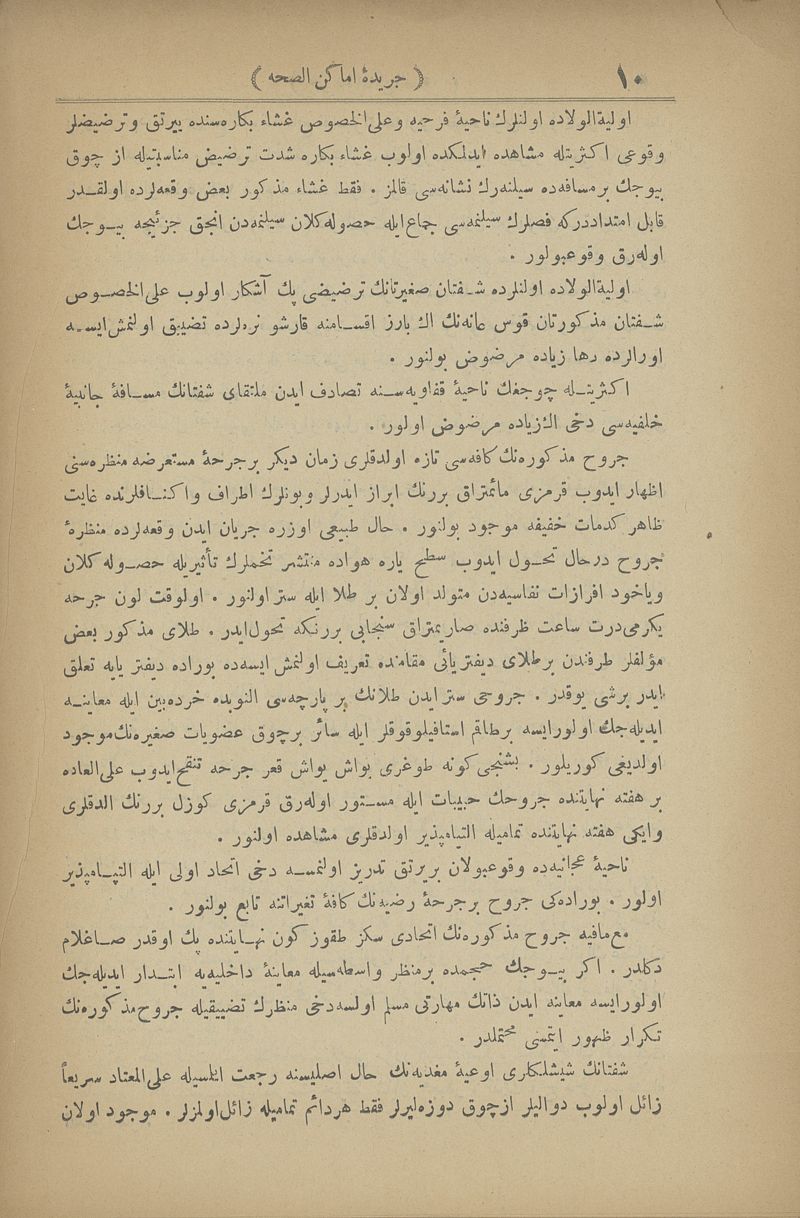 ١٠
﴿ جريدۀ اماكن الصحه ﴾
اولية‌الولاده اولنلرك ناحيۀ فرحيه وعلى‌الخصوص غشاء بكاره‌سنده ييرتق وترضيضلر
وقوعى اكثريتله مشاهده ايدلكده اولوب غشاء بكاره شدت ترضيض مناسبتيله از چوق
بيوجك بر مسافه‌ده سيلنه‌رك نشانه‌سى قالمز . فقط غشاء مذكور بعض وقعه‌لرده اولقـدر
قابل امتداددركه فصلرك سيلنمه‌سى جماع ايله حصوله‌كلان سيلنمه‌دن انجق جزئيجه بيـوجك
اوله‌رق وقوعبولور .
اولية‌الولاده اولنلرده شـفتان صغيرتانك ترضيضى پك آشكار اولوب على‌الخصـوص
شـفتان مذكورتان قوس عانه‌نك اك بارز اقسـامنه قارشو نره‌لرده تضييق اولنمش‌ايسـه
اورالرده دها زياده مرضوض بولنور .
اكثريتـله چوجغك ناحيۀ قفاويه‌سـنه تصادف ايدن ملتقاى شفتانك مسـافۀ جانبيۀ
خلفيه‌سى دخى اك‌زياده مرضوض اولور .
جروح مذكوره‌نك كافه‌سى تازه اولدقلرى زمان ديكر برجرحۀ مستعرضه منظره‌سنى
اظهار ايدوب قرمزى مائمتراق بررنك ابراز ايدرلر وبونلرك اطراف واكنـافلرنده غايت
ظاهر كدمات خفيفه موجود بولنور . حال طبيعى اوزره جريان ايدن وقعه‌لرده منظرۀ
جروح درحال تحـول ايدوب سطح ياره هواده منتشر تخملرك تأثيريله حصـوله كلان
وياخود افرازات نفاسيه‌دن متولد اولان بر طلا ايله ستر اولنور . اولوقت لون جرحه
يكرمى‌درت ساعت ظرفنده صاريمتراق سنجابى بررنكه تحول‌ايدر . طلاى مذكور بعض
مؤلفلر طرفندن برطلاى ديفتريائى مقامنده تعريف اولنمش ايسه‌ده بوراده ديفتريايه تعلق
ايدر برشى يوقدر . جروحى ستر ايدن طلانك بر پارچه‌سى النوبده خرده‌بين ايله معاينـه
ايديله‌جك اولورايسه برطاقم استافيلوقوقلر ايله سائر برچوق عضويات صغيره‌نك‌موجود
اولديغى كوريلور . بشنجى‌كونه طوغرى يواش يواش قعر جرحه تنقح‌ايدوب على‌العاده
بر هفته نهايتنده جروحك حبيبات ايله مسـتور اوله‌رق قرمزى كوزل بررنك الدقلرى
وايكى هفته نهايتنده تماميله التيامپذير اولدقلرى مشاهده اولنور .
ناحيۀ عجانيه‌ده وقوعبولان بريرتق تدريز اولنمسـه دخى اتحاد اولى ايله التيـامپذير
اولور . بوراده‌كى جروح برجرحۀ رضيه‌نك كافۀ تغيراتنه تابع بولنور .
مع‌مافيه جروح مذكوره‌نك اتحادى سكز طقوزكون نهـايتنده پك اوقدر صـاغلام
دكلدر . اكر بيـوجك حجمده برمنظر واسطه‌سيله معاينۀ داخليه‌يه ابتـدار ايديله‌جك
اولورايسه معاينه ايدن ذاتك مهارتى مسلم اولسه‌دخى منظرك تضييقيله جروح‌مذكوره‌نك
تكرار ظهور ايتمسى محتملدر .
شفتانك شيشلكلرى اوعيۀ مغديه‌نك حال اصليسنه رجعت ايلسيله على‌المعتاد سريعاً
زائل اولوب دواليلر ازچوق دوزه‌ليرلر فقط هردائم تماميله زائل‌اولمزلر . موجود اولان